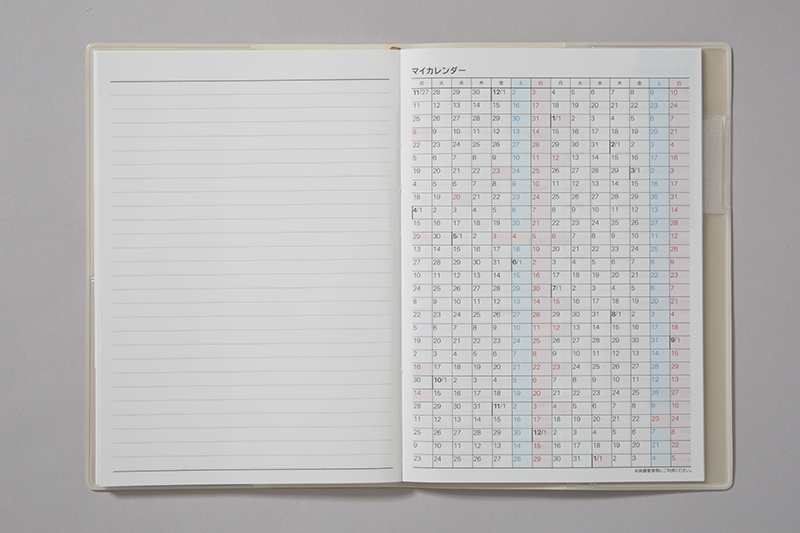 マイカレンダー
月 火 水 木 金 土 日 月 火 水 木 金 土 日
11/27 28 29 30 12/1 2 3 4 5 6 7 8 9 10
11 12 13 14 15 16 17 18 19 20 21 22 23 24
25 26 27 28 29 30 31 1/1 2 3 4 5 6 7
8 9 10 11 12 13 14 15 16 17 18 19 20 21
22 23 24 25 26 27 28 29 30 31 2/1 2 3 4
5 6 7 8 9 10 11 12 13 14 15 16 17 18
19 20 21 22 23 24 25 26 27 28 29 3/1 2 3
4 5 6 7 8 9 10 11 12 13 14 15 16 17
18 19 20 21 22 23 24 25 26 27 28 29 30 31
4/1 2 3 4 5 6 7 8 9 10 11 12 13 14
15 16 17 18 19 20 21 22 23 24 25 26 27 28
29 30 5/1 2 3 4 5 6 7 8 9 10 11 12
13 14 15 16 17 18 19 20 21 22 23 24 25 26
27 28 29 30 31 6/1 2 3 4 5 6 7 8 9
10 11 12 13 14 15 16 17 18 19 20 21 22 23
24 25 26 27 28 29 30 7/1 2 3 4 5 6 7
8 9 10 11 12 13 14 15 16 17 18 19 20 21
22 23 24 25 26 27 28 29 30 31 8/1 2 3 4
5 6 7 8 9 10 11 12 13 14 15 16 17 18
19 20 21 22 23 24 25 26 27 28 29 30 31 9/1
2 3 4 5 6 7 8 9 10 11 12 13 14 15
16 17 18 19 20 21 22 23 24 25 26 27 28 29
30 10/1 2 3 4 5 6 7 8 9 10 11 12 13
14 15 16 17 18 19 20 21 22 23 24 25 26 27
28 29 30 31 11/1 2 3 4 5 6 7 8 9 10
11 12 13 14 15 16 17 18 19 20 21 22 23 24
25 26 27 28 29 30 12/1 2 3 4 5 6 7 8
9 10 11 12 13 14 15 16 17 18 19 20 21 22
23 24 25 26 27 28 29 30 31 1/1 2 3 4 5
※体調管理等にご利用ください。